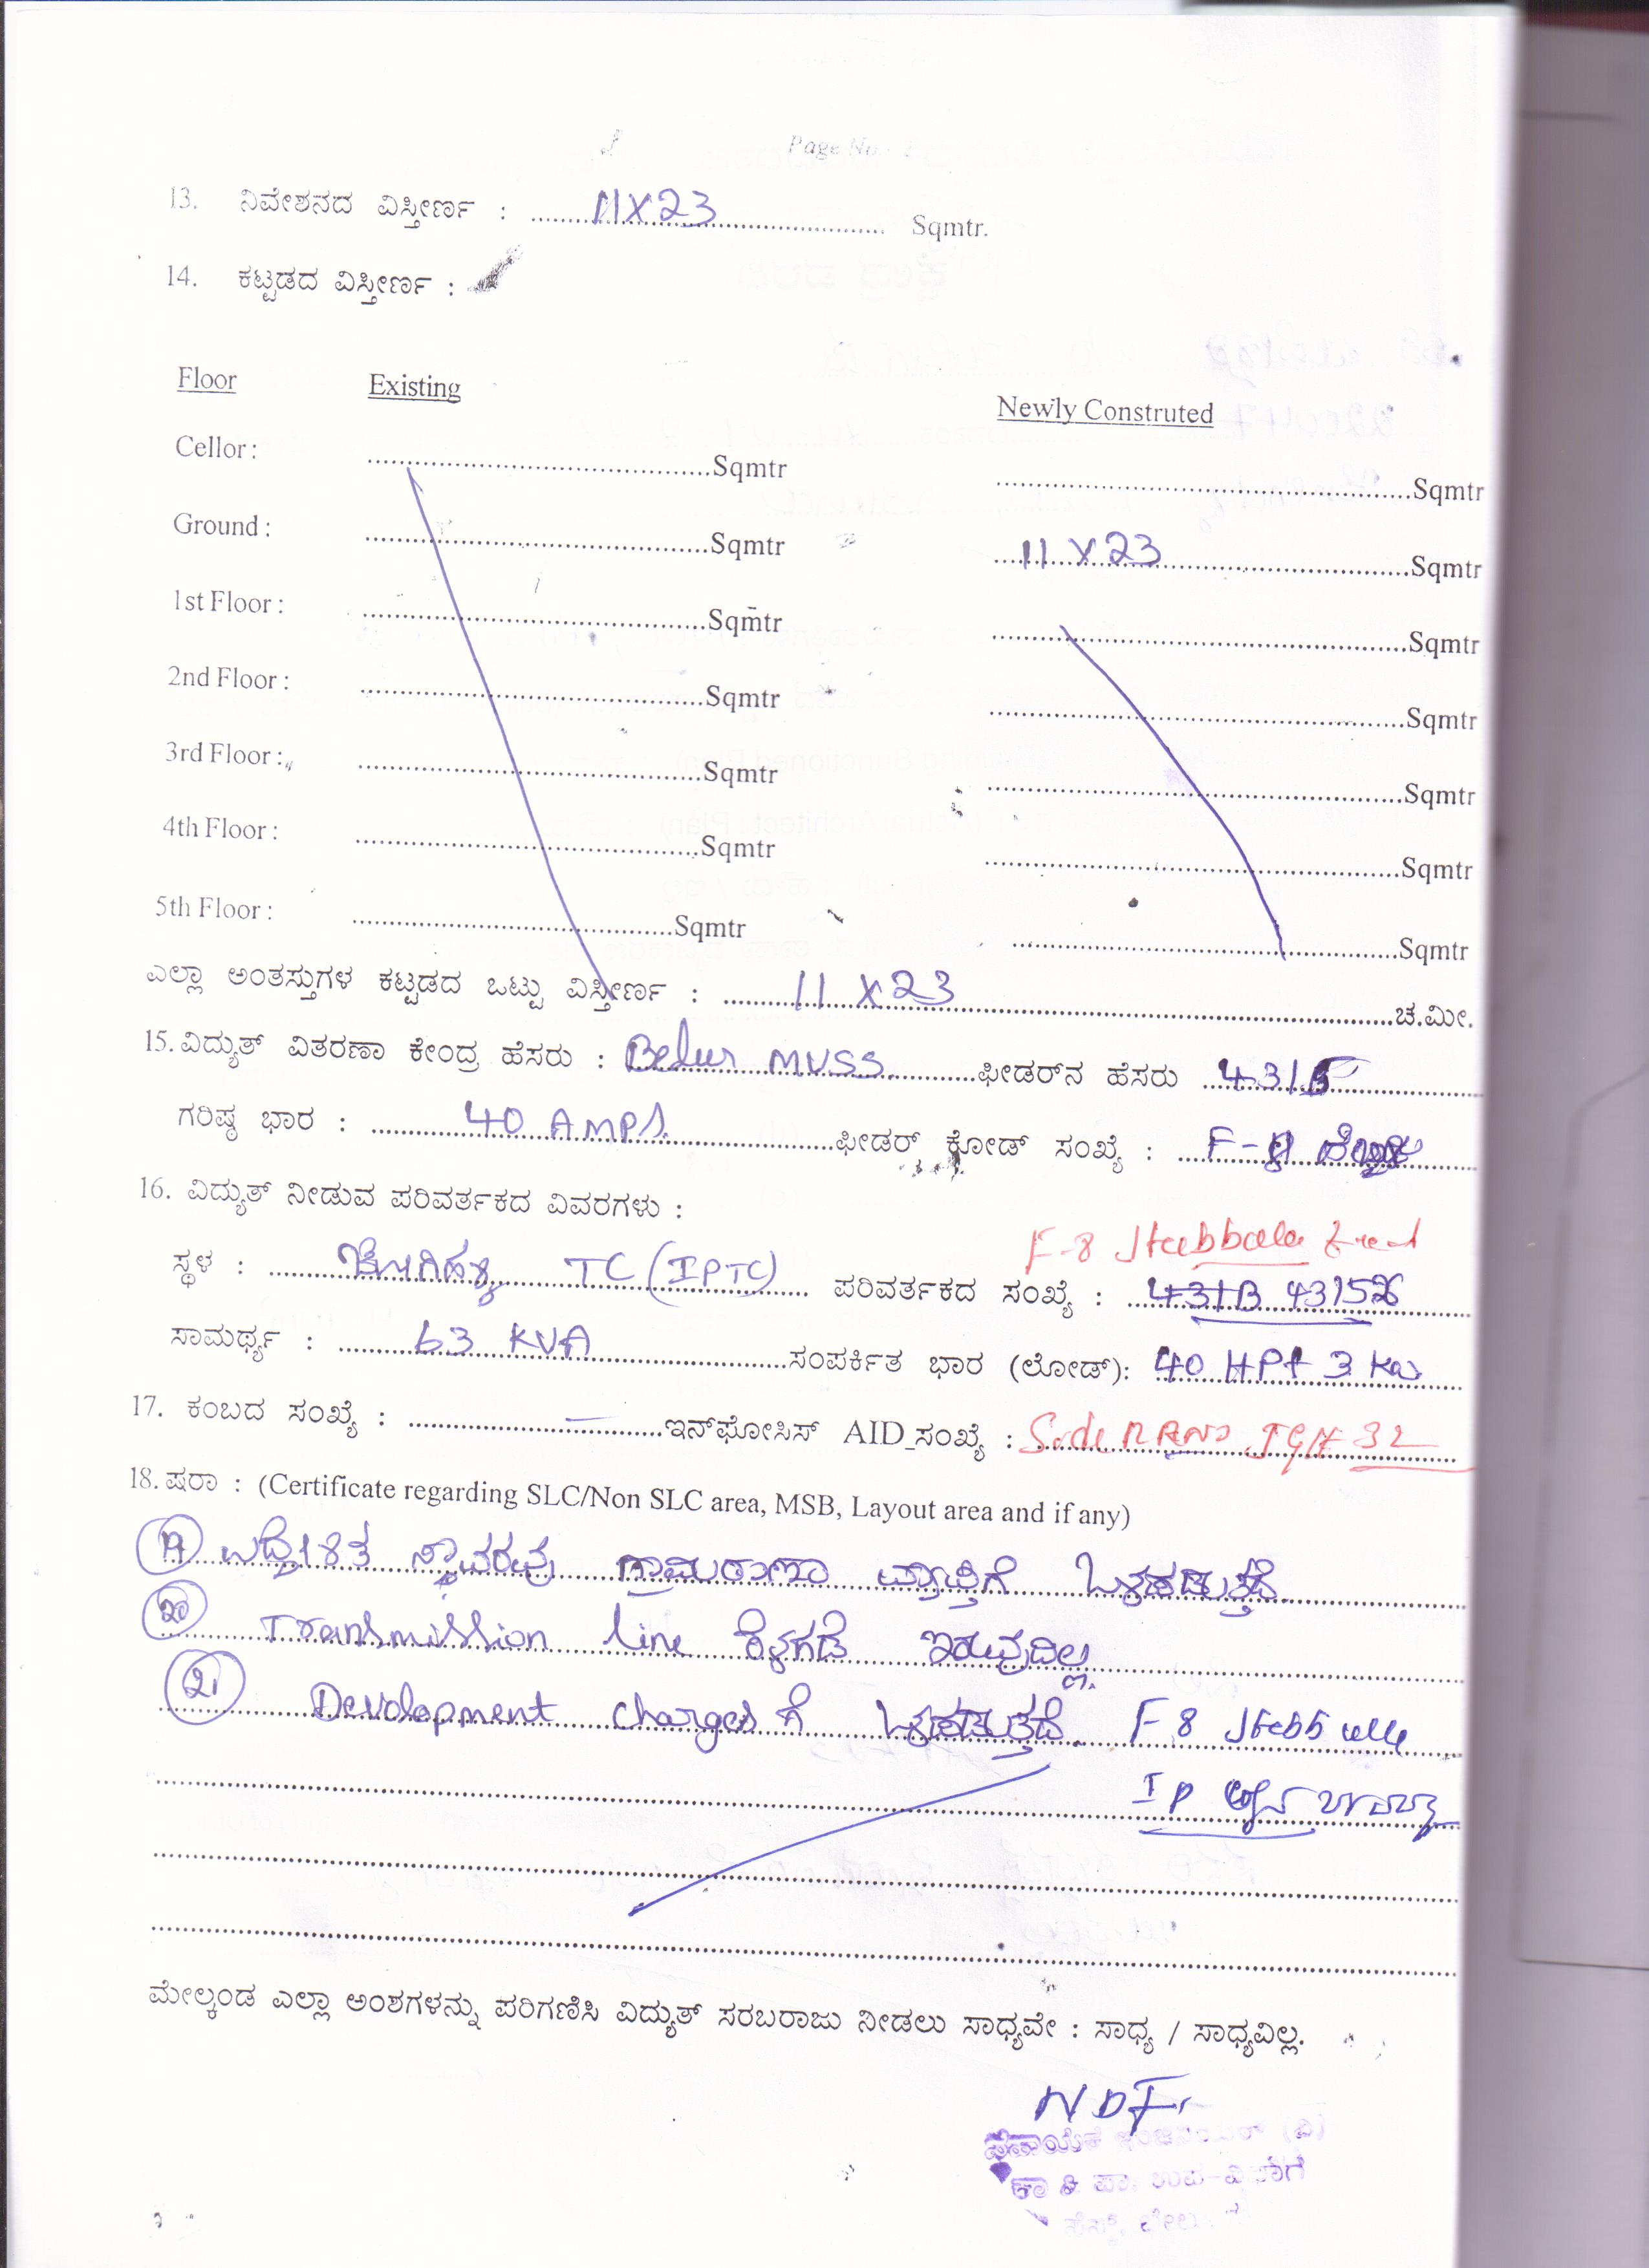 Page No
13. ನಿವೇಶನದ ವಿಸ್ತೀರ್ಣ : 11X23 Sqmtr.
14. ಕಟ್ಟಡದ ವಿಸ್ತೀರ್ಣ :
Floor Existing Newly Construted
Cellor : Sqmtr Sqmtr
Ground : Sqmtr 11 X 23 Sqmtr
1st Floor : Sqmtr Sqmtr
2nd Floor : Sqmtr Sqmtr
3rd Floor : Sqmtr Sqmtr
4th Floor : Sqmtr Sqmtr
5th Floor : Sqmtr Sqmtr
ಎಲ್ಲಾ ಅಂತಸ್ತುಗಳ ಕಟ್ಟಡದ ಒಟ್ಟು ವಿಸ್ತೀರ್ಣ : 11 X 23 ಚ.ಮೀ.
15. ವಿದ್ಯುತ್ ವಿತರಣಾ ಕೇಂದ್ರ ಹೆಸರು : Belur MUSS ಫೀಡರ್‌ನ ಹೆಸರು
ಗರಿಷ್ಠ ಭಾರ : 40 AMPS. ಫೀಡರ್ ಕೋಡ್ ಸಂಖ್ಯೆ : F-8
16. ವಿದ್ಯುತ್ ನೀಡುವ ಪರಿವರ್ತಕದ ವಿವರಗಳು :
F-8
ಸ್ಥಳ : TC (IPTC) ಪರಿವರ್ತಕದ ಸಂಖ್ಯೆ :
ಸಾಮರ್ಥ್ಯ : 63 KVA ಸಂಪರ್ಕಿತ ಭಾರ (ಲೋಡ್): 40 HP+ 3 Kw
17. ಕಂಬದ ಸಂಖ್ಯೆ : — ಇನ್‌ಫೋಸಿಸ್ AID ಸಂಖ್ಯೆ : 32
18. ಷರಾ : (Certificate regarding SLC/Non SLC area, MSB, Layout area and if any)
19 ಸ್ಥಾವರವು ಗ್ರಾಮಠಾಣಾ ವ್ಯಾಪ್ತಿಗೆ ಒಳಪಡುತ್ತದೆ.
20 Transmission line ಕೆಳಗಡೆ ಇರುವುದಿಲ್ಲ.
21 Development charges ಗೆ ಒಳಪಡುತ್ತದೆ. F 8
IP
ಮೇಲ್ಕಂಡ ಎಲ್ಲಾ ಅಂಶಗಳನ್ನು ಪರಿಗಣಿಸಿ ವಿದ್ಯುತ್ ಸರಬರಾಜು ನೀಡಲು ಸಾಧ್ಯವೇ : ಸಾಧ್ಯ / ಸಾಧ್ಯವಿಲ್ಲ.
ಸಹಾಯಕ ಇಂಜಿನಿಯರ್ (ವಿ)
ಕಾ & ಪಾ ಉಪ-ವಿಭಾಗ